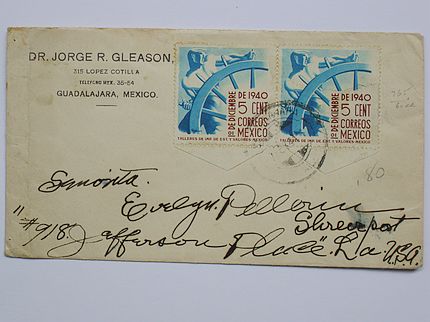 DR. JORGE R. GLEASON,
315 LOPEZ COTILLA
TELEFONO MEX. 35-54
GUADALAJARA, MEXICO.
1º DE DICIEMBRE DE 1940
5 CENT
CORREOS
MEXICO
TALLERES DE IMP. DE EST. Y VALORES-MEXICO
1º DE DICIEMBRE DE 1940
5 CENT
CORREOS
MEXICO
TALLERES DE IMP. DE EST. Y VALORES-MEXICO
765
blue
.80
Senorita.
Evelyn Pellerin
Shreveport
#918. Jefferson Place. La. U.S.A.